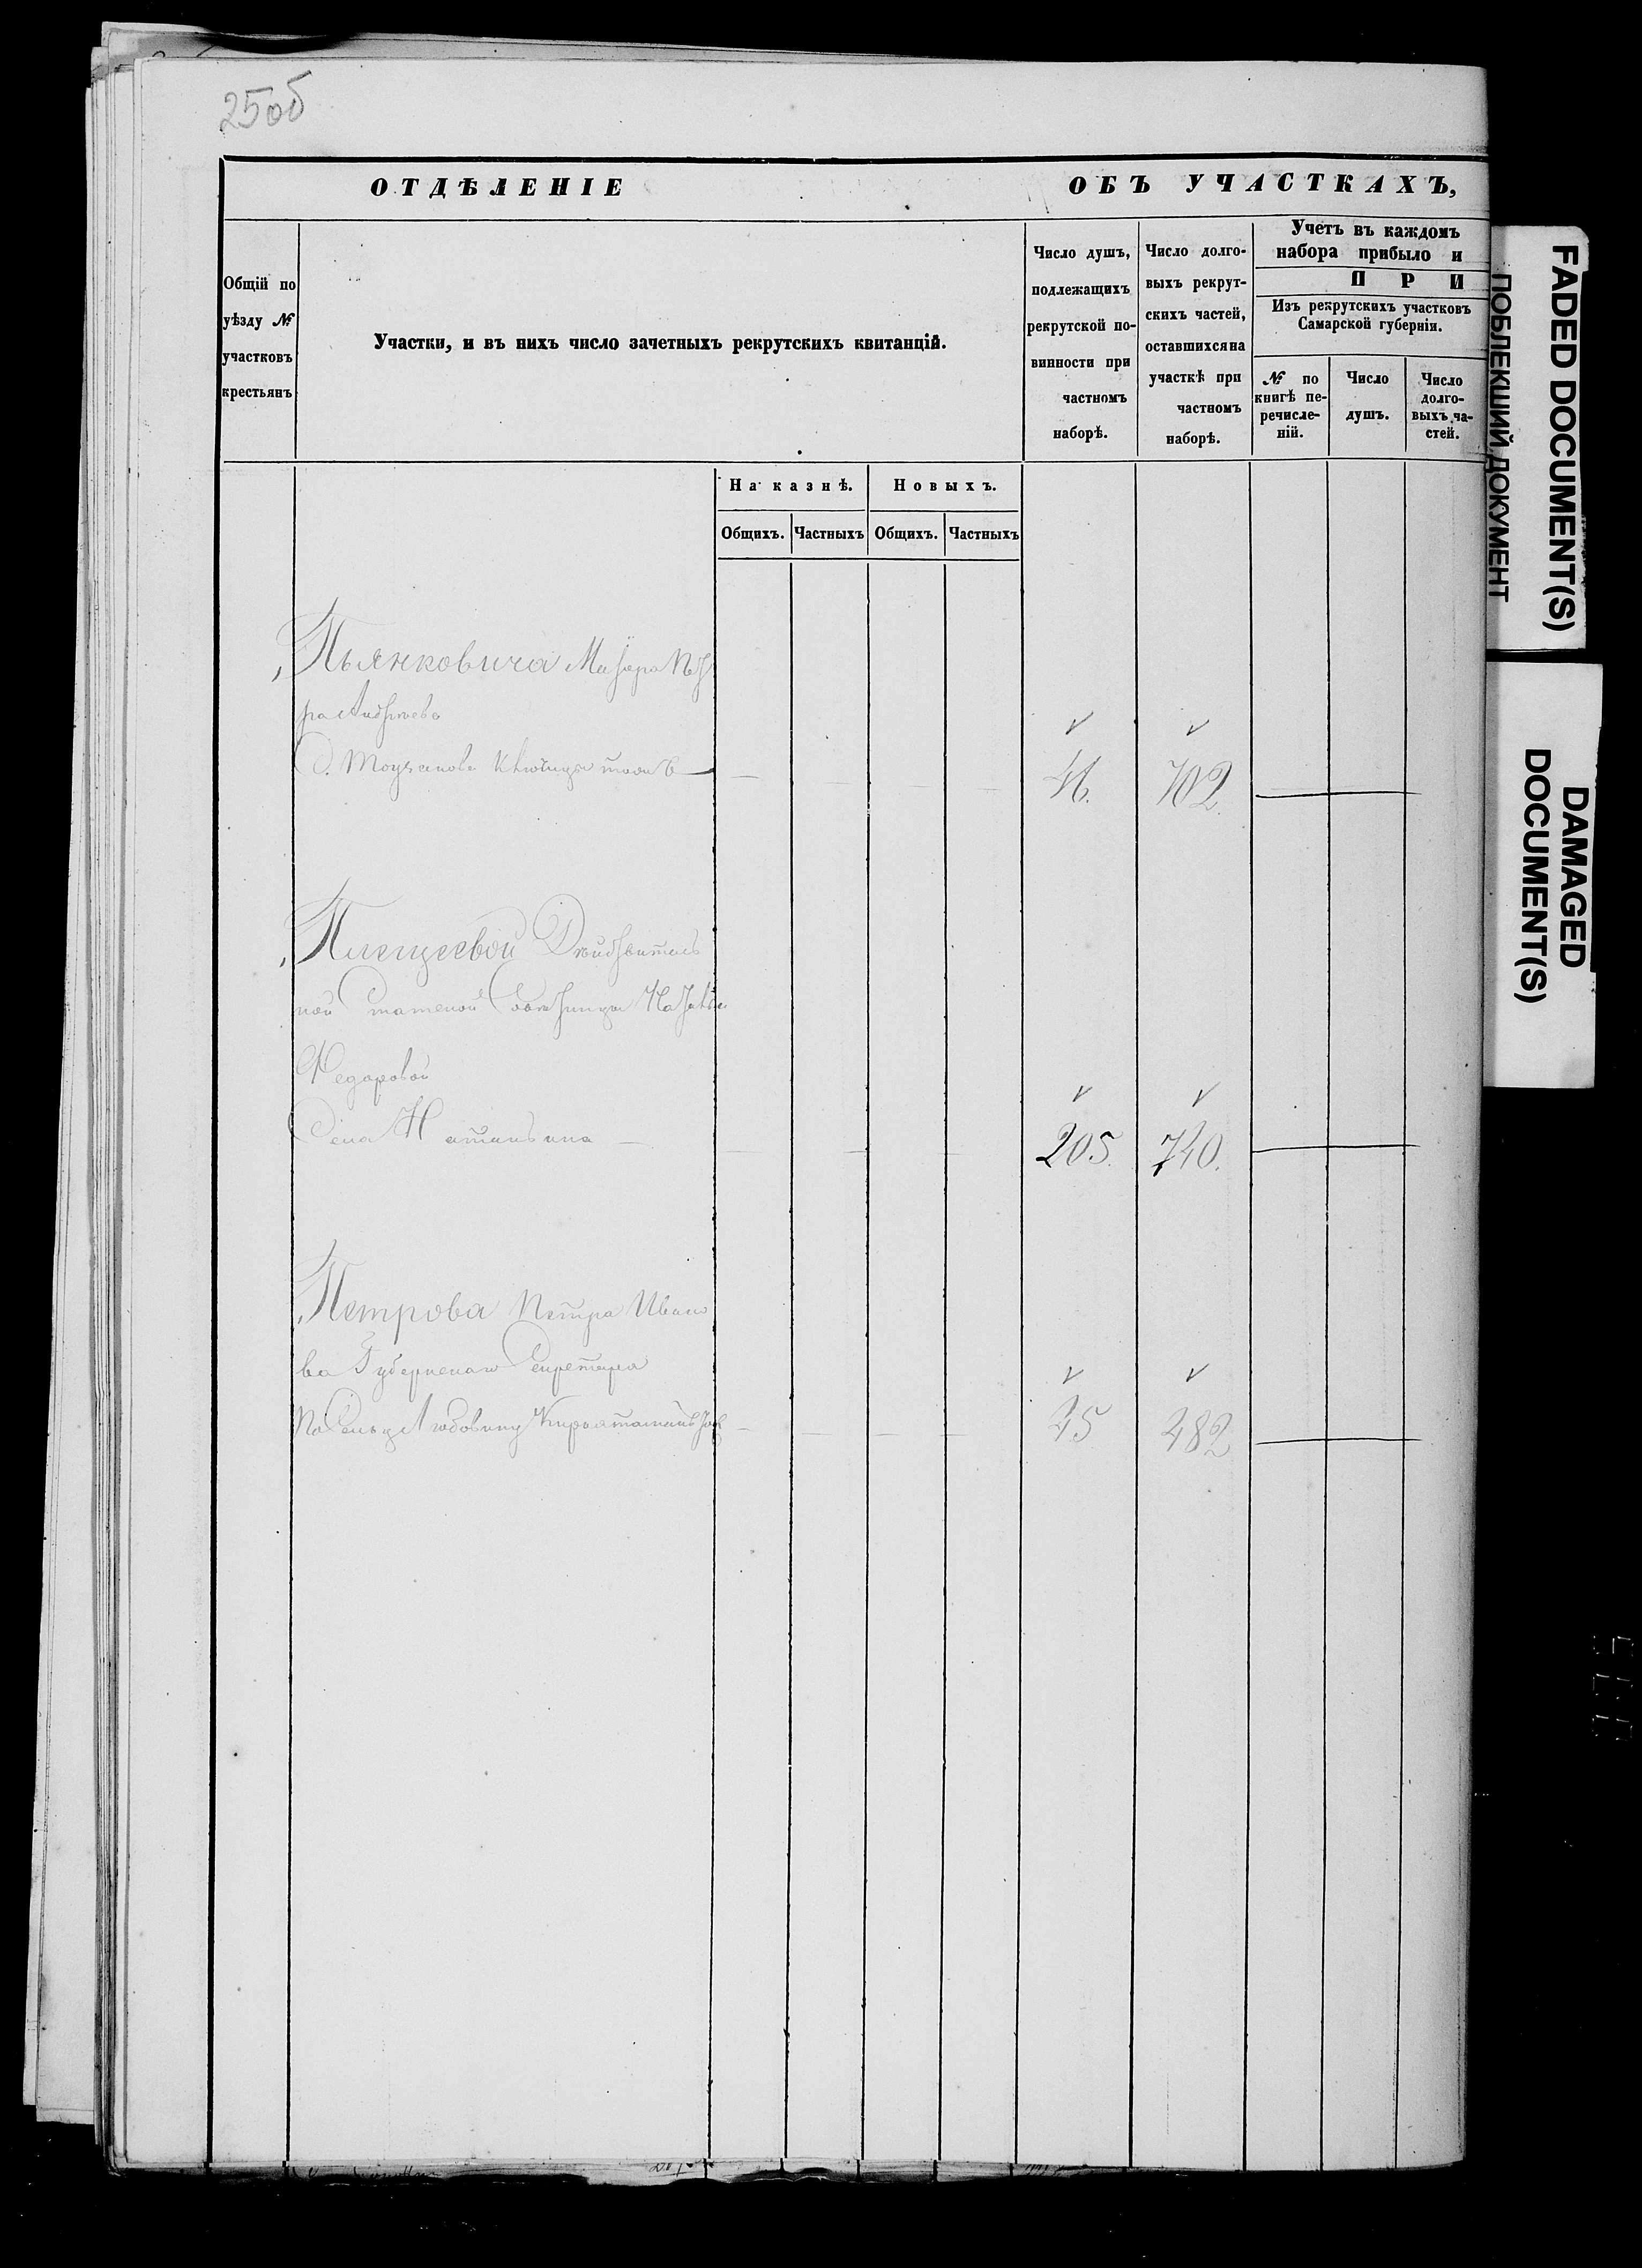 25об
ОТДѢЛЕНІЕ ОБЪ УЧАСТКАХЪ,
Общій по уѣзду № участковъ крестьянъ
Участки, и въ нихъ число зачетныхъ рекрутскихъ квитанцій.
Число душъ, подлежащихъ рекрутской повинности при частномъ наборѣ.
Число долговыхъ рекрутскихъ частей, оставшихся на участкѣ при частномъ наборѣ.
Учетъ въ каждомъ
набора прибыло и
П Р И
Изъ рекрутскихъ участковъ
Самарской губерніи.
№ по книгѣ перечисленій.
Число душъ.
Число долговыхъ частей.
На казнѣ. Новыхъ.
Общихъ. Частныхъ Общихъ. Частныхъ
Пьянковича Маіора Пет
ра Андреева
46. 702.
Плещеевой Действитель
ной Статской Советницы Натальи
Федоровой
Села Натальина 205. 740.
Петрова Петра Ивано
ва Губернскаго Секретаря
25 482
FADED DOCUMENT(S)
ПОБЛЕКШИЙ ДОКУМЕНТ
DAMAGED
DOCUMENT(S)